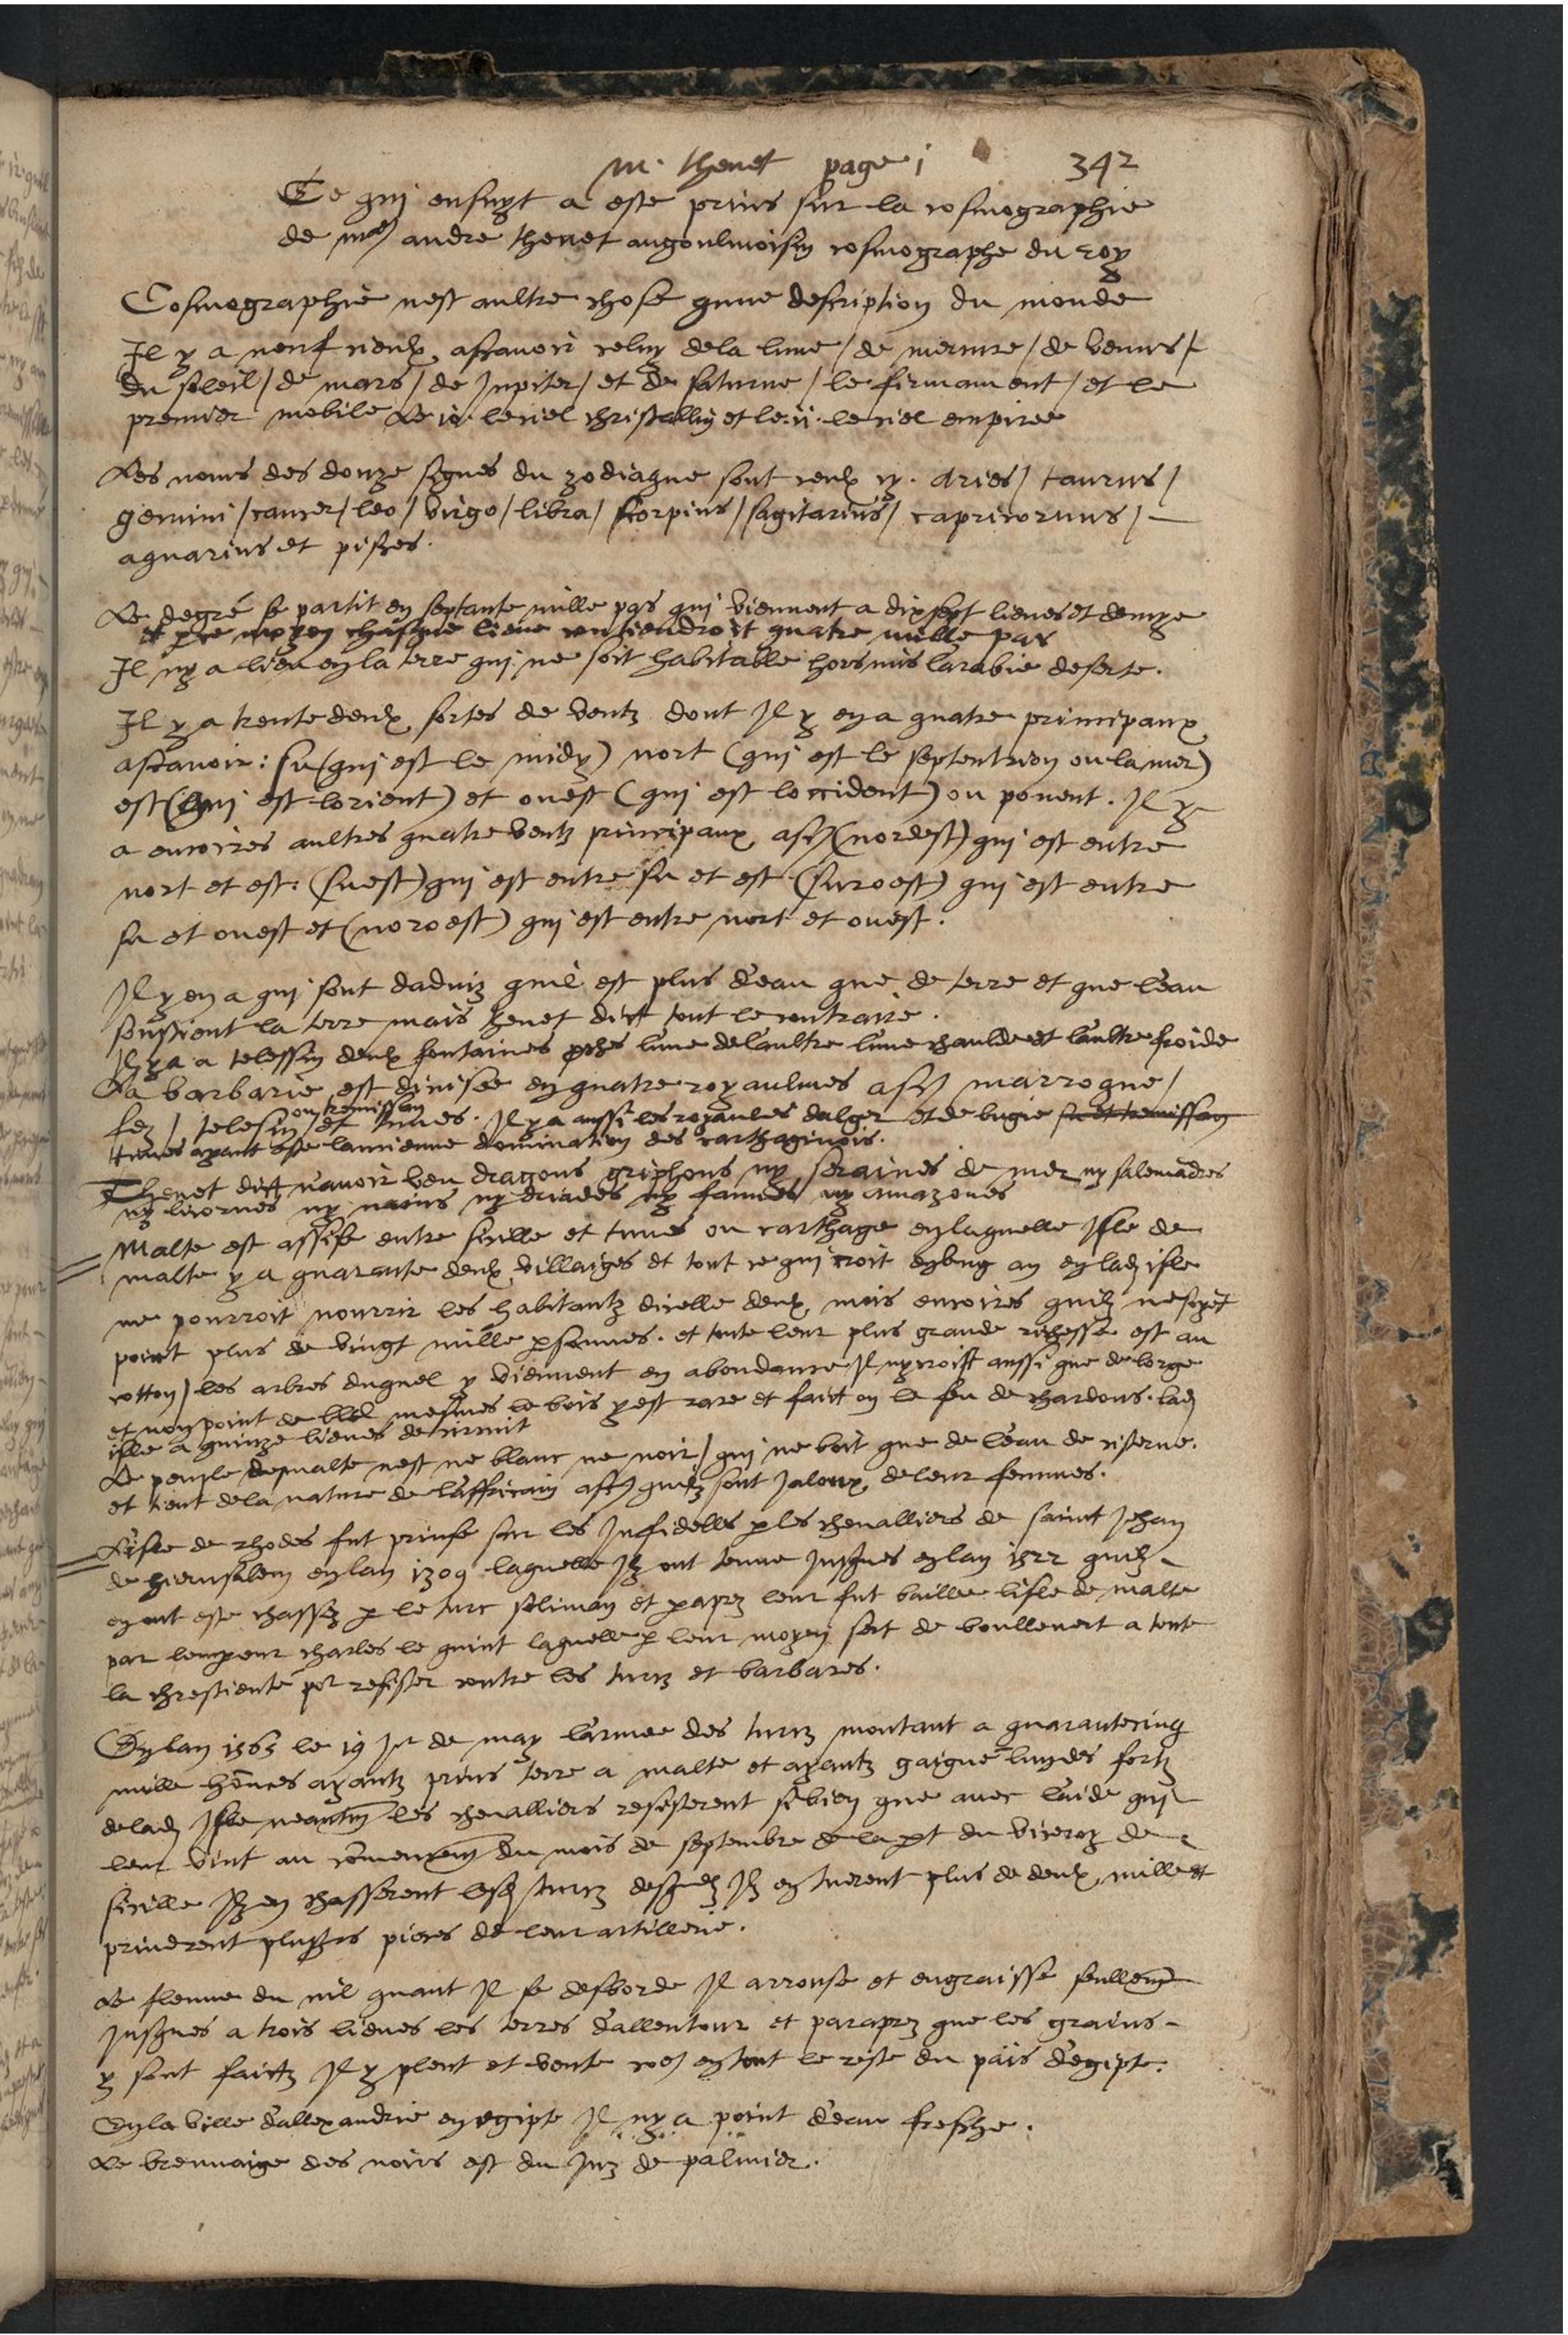 m. thevet page i 342
Ce qui ensuyt a este prins sur la cosmographie
de me andre thevet angoulmoisin cosmographe du roy
Cosmographie nest aultre chose qune description du monde
Il y a neuf cieulx, ascavoir celuy de la lune / de mercure / de venus /
du soleil / de mars / de Jupiter / et de saturne / le firmament / et le
premier mobile Le .10. le ciel christallin et le .ii. le ciel empiree
Les noms des douze signes du zodiaque sont ceulx cy. aries / taurus /
gemini / cancer / leo / virgo / libra / scorpius / sagitarius / capricornus / —
aquarius et pisces.
Le degre se partit en septante mille pas qui viennent a dixsept lieues et demye
et par ce moyen chascune lieue contiendroit quatre mille pas
Il ny a lieu en la terre qui ne soit habitable hors mis larabie deserte.
Il y a trente deulx sortes de ventz dont Il y en a quatre principaux
ascavoir : su (qui est le midy) nort (qui est le septentrion ou la mer)
est (qui est lorient) et ouest (qui est loccident) ou ponent. Il y
a encoires aultres quatre ventz principaux asc (nordest) qui est entre
nort et est : (suest) qui est entre su et est (suroest) qui est entre
su et ouest et (noroest) qui est entre nort et ouest.
Il y en a qui sont daduiz quil est plus deau que de terre et que leau
soustient la terre mais thevet dict tout le contraire.
Il y a a telessin deulx fontaines pches lune de laultre lune chaulde et laultre froide
La barbarie est divisee en quatre royaulmes asc marroque /
fez / telesin ou tremissan et tunes. Il y a aussi les royaulmes dalger et de bugie et tremissan
tunes ayant este lancienne domination des carthaginois.
Thevet dict navoir veu dragons griphons ny seraines de mer ny salemādres
ny licornes ny nains ny driades ny faunes ny amazones
Malte est assise entre sicille et tunes ou carthage en laquelle Isle de
malte y a quarante deulx villaiges et tout ce qui croit en ung an en lad isle
ne pourroit nourrir les habitantz dicelle deulx mois encoires quilz ne soyēt
point plus de vingt mille psonnes. et toute leur plus grande richesse est au
cotton / les arbres duquel y viennent en abondance Il ny croist aussi que de lorge
et non point de bled mesmes le bois y est rare et faict on le feu de chardons. lad
isle a quinze lieues de circuit
Le peuple de malte nest ne blanc ne noir / qui ne boit que de leau de cisterne.
et tient de la nature de laffricain asc quilz sont Jaloux de leur femmes.
Lisle de rhodes fut prinse sur les Infidelles p les chevalliers de saint Jehan
de hierusalem en lan 1309 laquelle Ilz ont tenue Jusques en lan 1522 quilz —
en ont este chassez p le turc soliman et p apz leur fut baillee lisle de malte
par lempeur charles le quint laquelle p leur moyen sert de boullevert a toute
la chrestiente pr resister contre les turcz et barbares.
En lan 1565 le 19 Jr de may larmee des turcz montant a quarantecinq
mille hōmes ayantz prins terre a malte et ayantz gaigne lun des fortz
de lad Isle neantm les chevalliers resisterent si bien que avec laide qui
leur vint au cōmencem du mois de septembre de la pt du viceroy de
sicille Ilz en chasserent lesd turcz desquelz Ilz en tuerent plus de deulx mille et
prindrent plusrs pieces de leur artillerie.
Le fleuve du nil quant Il se desborde Il arrouse et engraisse seullemt
Jusques a trois lieues les terres dallentour et parapz que les grains —
y sont faictz Il y pleut et vente coe en tout le reste du pais degipte.
En la ville dallexandrie en egipte Il ny a point deau fresche.
Le breuvaige des noirs est du Juz de palmier.